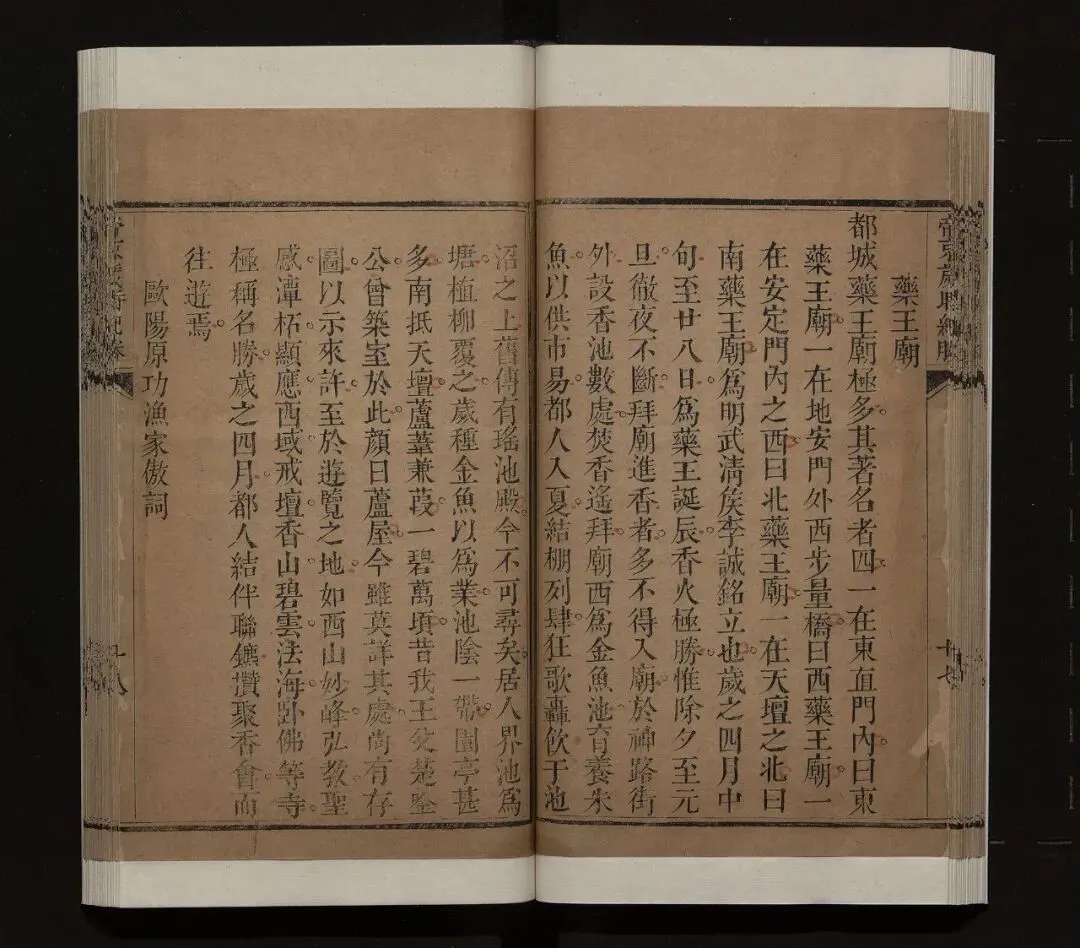 帝京歲時紀勝
十七
藥王廟
都城藥王廟極多其著名者四一在東直門內曰東
藥王廟一在地安門外西步量橋曰西藥王廟一
在安定門內之西曰北藥王廟一在天壇之北曰
南藥王廟爲明武淸矦李誠銘立也歲之四月中
旬至廿八日爲藥王誕辰香火極勝惟除夕至元
旦徹夜不斷拜廟進香者多不得入廟於神路街
外設香池數處焚香遙拜廟西爲金魚池育養朱
魚以供市易都人入夏結棚列肆狂歌轟飮于池
沼之上舊傳有瑤池殿今不可尋矣居人界池爲
塘植柳覆之歲種金魚以爲業池陰一帶園亭甚
多南抵天壇蘆葦兼葭一碧萬頃昔我王父楚壑
公曾築室於此顏曰蘆屋今雖莫詳其處尚有存
圖以示來許至於遊覽之地如西山妙峰弘教聖
感潭柘顯應西域戒壇香山碧雲法海臥佛等寺
極稱名勝歲之四月都人結伴聯鑣攢聚香會而
往遊焉
歐陽原功漁家傲詞